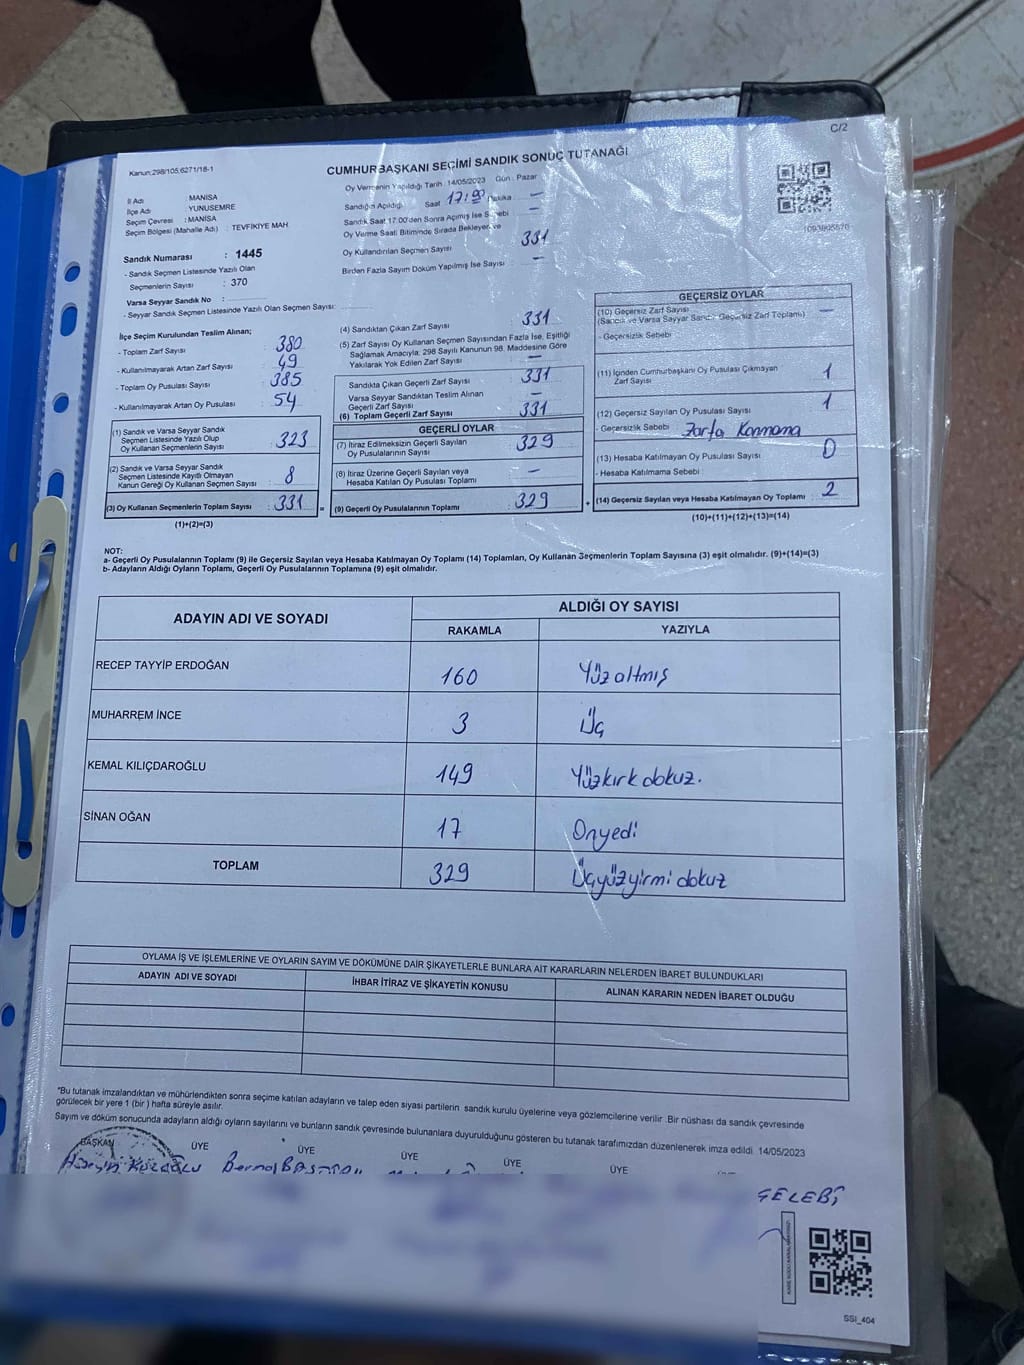 C/2
Kanun:298/105,6271/18-1
CUMHURBAŞKANI SEÇİMİ SANDIK SONUÇ TUTANAĞI
İl Adı : MANISA
İlçe Adı YUNUSEMRE
Seçim Çevresi : MANISA
Seçim Bölgesi (Mahalle Adı) : TEVFIKIYE MAH
Sandık Numarası : 1445
- Sandık Seçmen Listesinde Yazılı Olan
Seçmenlerin Sayısı : 370
Varsa Seyyar Sandık No :
- Seyyar Sandık Seçmen Listesinde Yazılı Olan Seçmen Sayısı:
Oy Vermenin Yapıldığı Tarih : 14/05/2023 Gün : Pazar
Sandığın Açıldığı Saat 17:00 Dakika —
Sandık Saat 17.00'den Sonra Açılmış İse Sebebi —
Oy Verme Saati Bitiminde Sırada Bekleyen ve
Oy Kullandırılan Seçmen Sayısı 331
Birden Fazla Sayım Döküm Yapılmış İse Sayısı —
İlçe Seçim Kurulundan Teslim Alınan;
- Toplam Zarf Sayısı : 380
- Kullanılmayarak Artan Zarf Sayısı : 49
- Toplam Oy Pusulası Sayısı : 385
- Kullanılmayarak Artan Oy Pusulası : 54
(1) Sandık ve Varsa Seyyar Sandık
Seçmen Listesinde Yazılı Olup
Oy Kullanan Seçmenlerin Sayısı : 323
(2) Sandık ve Varsa Seyyar Sandık
Seçmen Listesinde Kayıtlı Olmayan
Kanun Gereği Oy Kullanan Seçmen Sayısı : 8
(3) Oy Kullanan Seçmenlerin Toplam Sayısı : 331
(1)+(2)=(3)
(4) Sandıktan Çıkan Zarf Sayısı : 331
(5) Zarf Sayısı Oy Kullanan Seçmen Sayısından Fazla İse, Eşitliği
Sağlamak Amacıyla, 298 Sayılı Kanunun 98. Maddesine Göre
Yakılarak Yok Edilen Zarf Sayısı : —
Sandıkta Çıkan Geçerli Zarf Sayısı : 331
Varsa Seyyar Sandıktan Teslim Alınan
Geçerli Zarf Sayısı : —
(6) Toplam Geçerli Zarf Sayısı : 331
GEÇERLİ OYLAR
(7) İtiraz Edilmeksizin Geçerli Sayılan
Oy Pusulasının Sayısı : 329
(8) İtiraz Üzerine Geçerli Sayılan veya
Hesaba Katılan Oy Pusulası Toplamı : —
(9) Geçerli Oy Pusulalarının Toplamı : 329
GEÇERSİZ OYLAR
(10) Geçersiz Zarf Sayısı —
(Sandık ve Varsa Seyyar Sandık Geçersiz Zarf Toplamı)
- Geçersizlik Sebebi
(11) İçinden Cumhurbaşkanı Oy Pusulası Çıkmayan
Zarf Sayısı 1
(12) Geçersiz Sayılan Oy Pusulası Sayısı 1
- Geçersizlik Sebebi Zarfa Konmama
(13) Hesaba Katılmayan Oy Pusulası Sayısı 0
- Hesaba Katılmama Sebebi
(14) Geçersiz Sayılan veya Hesaba Katılmayan Oy Toplamı : 2
(10)+(11)+(12)+(13)=(14)
NOT:
a- Geçerli Oy Pusulalarının Toplamı (9) ile Geçersiz Sayılan veya Hesaba Katılmayan Oy Toplamı (14) Toplamları, Oy Kullanan Seçmenlerin Toplam Sayısına (3) eşit olmalıdır. (9)+(14)=(3)
b- Adayların Aldığı Oyların Toplamı, Geçerli Oy Pusulalarının Toplamına (9) eşit olmalıdır.
ADAYIN ADI VE SOYADI ALDIĞI OY SAYISI
RAKAMLA YAZIYLA
RECEP TAYYİP ERDOĞAN 160 Yüzaltmış
MUHARREM İNCE 3 Üç
KEMAL KILIÇDAROĞLU 149 Yüzkırkdokuz.
SİNAN OĞAN 17 Onyedi
TOPLAM 329 Üçyüzyirmidokuz
OYLAMA İŞ VE İŞLEMLERİNE VE OYLARIN SAYIM VE DÖKÜMÜNE DAİR ŞİKAYETLERLE BUNLARA AİT KARARLARIN NELERDEN İBARET BULUNDUKLARI
ADAYIN ADI VE SOYADI İHBAR İTİRAZ VE ŞİKAYETİN KONUSU ALINAN KARARIN NEDEN İBARET OLDUĞU
*Bu tutanak imzalandıktan ve mühürlendikten sonra seçime katılan adayların ve talep eden siyasi partilerin sandık kurulu üyelerine veya gözlemcilerine verilir. Bir nüshası da sandık çevresinde
görülecek bir yere 1 (bir ) hafta süreyle asılır.
Sayım ve döküm sonucunda adayların aldığı oyların sayılarını ve bunların sandık çevresinde bulunanlara duyurulduğunu gösteren bu tutanak tarafımızdan düzenlenerek imza edildi. 14/05/2023
BAŞKAN ÜYE ÜYE ÜYE ÜYE ÜYE
ÇELEBİ
SSI_404